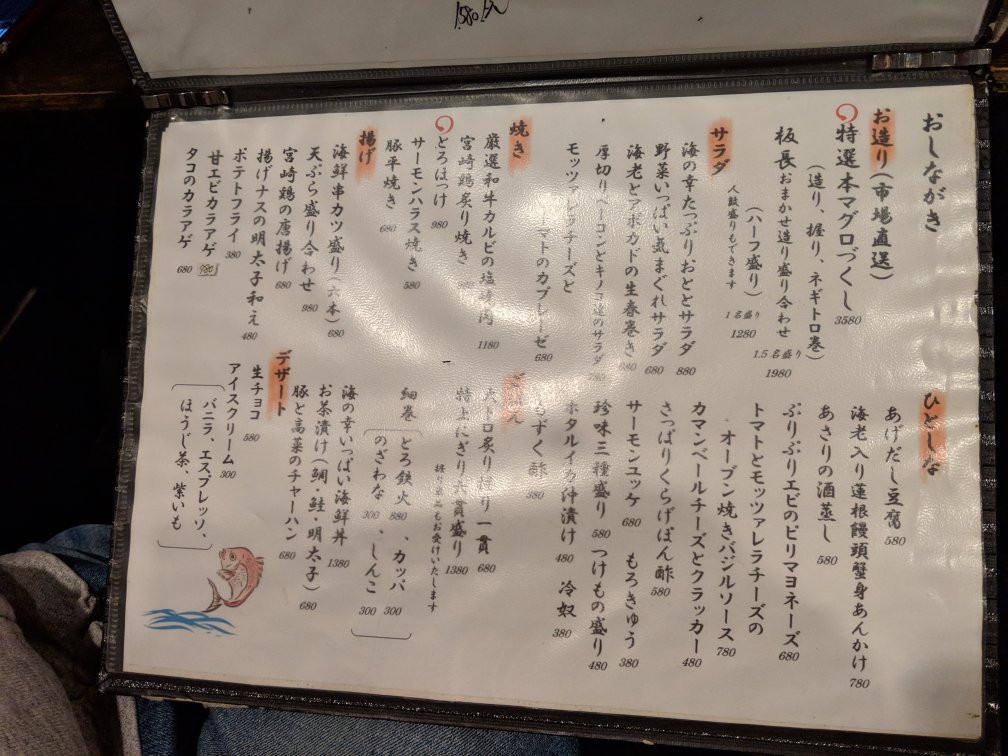 おしながき
お造り(市場直送)
特選本マグロづくし 3580
(造り、握り、ネギトロ巻)
板長おまかせ造り盛り合わせ
1.5名盛り 1980
(ハーフ盛り) 1名盛り 1280
人数盛りもできます
サラダ
海の幸たっぷりおととサラダ 880
野菜いっぱい気まぐれサラダ 680
海老とアボカドの生春巻き 680
厚切りベーコンとキノコ達のサラダ 780
モッツァレラチーズと
トマトのカプレーゼ 680
焼き
厳選和牛カルビの塩焼肉 1180
宮崎鶏炙り焼き
とろほっけ 980
サーモンハラス焼き 580
豚平焼き 680
揚げ
海鮮串カツ盛り(六本) 680
天ぷら盛り合わせ 980
宮崎鶏の唐揚げ 680
揚げナスの明太子和え 480
ポテトフライ 380
甘エビカラアゲ
タコのカラアゲ 680
ひとしな
あげだし豆腐 580
海老入り蓮根饅頭蟹身あんかけ 780
あさりの酒蒸し 580
ぷりぷりエビのピリマヨネーズ 680
トマトとモッツァレラチーズの
オーブン焼きバジルソース 780
カマンベールチーズとクラッカー 480
さっぱりくらげぽん酢 580
サーモンユッケ 680 もろきゅう 380
珍味三種盛り 580 つけもの盛り 480
ホタルイカ沖漬け 480 冷奴 380
もずく酢 380
ごはん
大トロ炙りにぎり一貫 680
特上にぎり六貫盛り 1380
握り単品もお受けいたします
細巻(とろ鉄火 880、カッパ 300
のざわな 300、しんこ 300)
海の幸いっぱい海鮮丼 1380
お茶漬け(鯛、鮭・明太子) 680
豚と高菜のチャーハン 680
デザート
生チョコ 580
アイスクリーム 300
(バニラ、エスプレッソ、
ほうじ茶、紫いも)